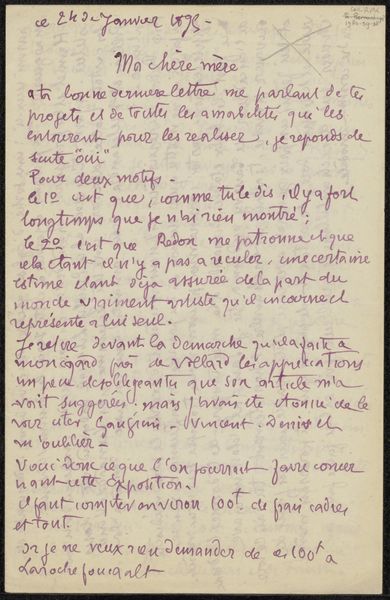 ce 24 de Janvier 1895 -
Ma chère mère
a ta bonne dernière lettre me parlant de tes
projets et de toutes les amabilités qui les
entourent pour les réaliser, je réponds de
suite "oui"
Pour deux motifs -
le 1º c'est que, comme tu le dis, il y a fort
longtemps que je n'ai rien montré ;
le 2º c'est que Redon me patronne et que
cela étant il n'y a pas a reculer, une certaine
estime etant déja assurée de la part du
monde vraiment artiste qu'il incarne et
représente a lui seul.
Je retire devant la demarche qu'il a faite a
mon égard près de Vollard les appréciations
un peu desobligeantes que son article m'a
vait suggerées - mais j'avais été étonné de le
voir citer Gauguin - Vincent - Denis et
m'oublier -
Voici donc ce que l'on pourrait faire concer
nant cette Exposition -
il faut compter environ 100f. de frais cadres
et tout.
or je ne veux rien demander de ces 100f a
Larochefoucault